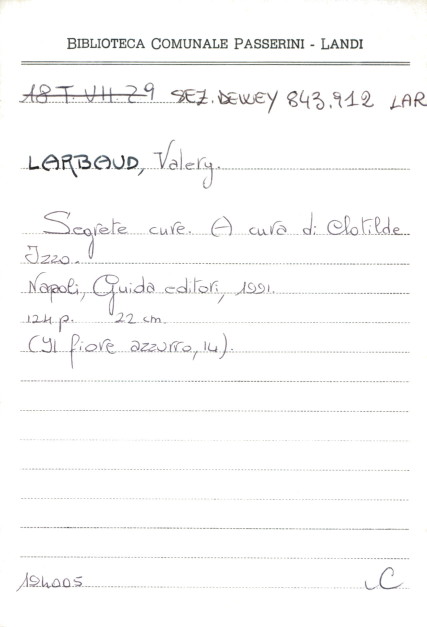 BIBLIOTECA COMUNALE PASSERINI - LANDI
18 T. VII. 29 SEZ. DEWEY 843.912 LAR
LARBAUD, Valery.
Segrete cure. (A cura di Clotilde
Izzo.
Napoli, Guida editori, 1991.
124 p. 22 cm.
(Il fiore azzurro, 14).
194005 C